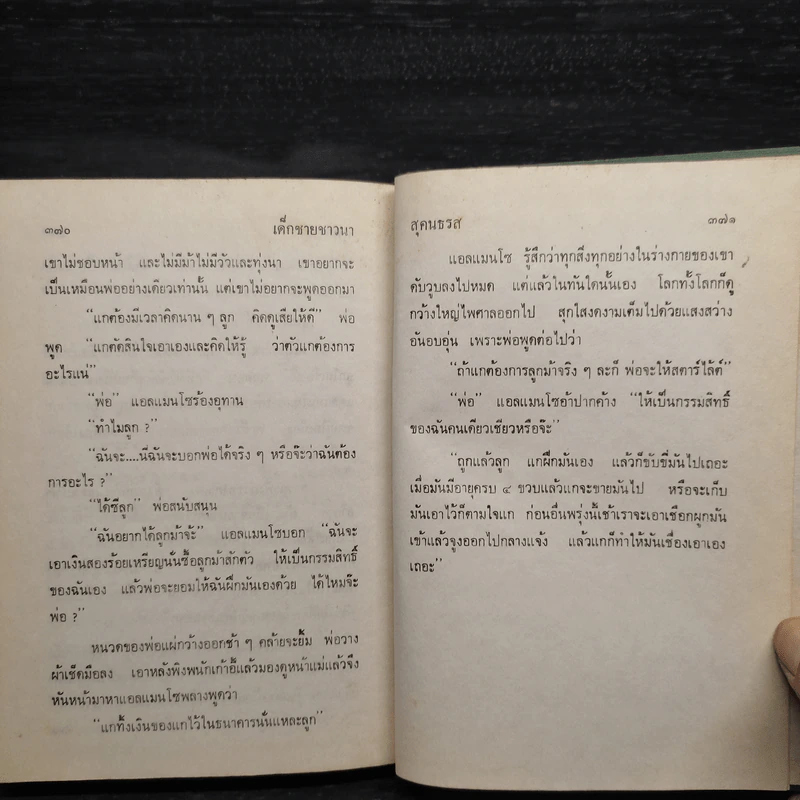 ๓๗๐ เด็กชายชาวนา
เขาไม่ชอบหน้า และไม่มีม้าไม่มีวัวและทุ่งนา เขาอยากจะ
เป็นเหมือนพ่ออย่างเดียวเท่านั้น แต่เขาไม่อยากจะพูดออกมา
“แกต้องมีเวลาคิดนาน ๆ ลูก คิดดูเสียให้ดี” พ่อ
พูด “แกตัดสินใจเอาเองและคิดให้รู้ ว่าตัวแกต้องการ
อะไรแน่”
“พ่อ” แอลแมนโซร้องอุทาน
“ทำไมลูก ?”
“ฉันจะ....นี่ฉันจะบอกพ่อได้จริง ๆ หรือจ๊ะว่าฉันต้อง
การอะไร ?”
“ได้ซีลูก” พ่อสนับสนุน
“ฉันอยากได้ลูกม้าจ้ะ” แอลแมนโซบอก “ฉันจะ
เอาเงินสองร้อยเหรียญนั่นซื้อลูกม้าสักตัว ให้เป็นกรรมสิทธิ์
ของฉันเอง แล้วพ่อจะยอมให้ฉันฝึกมันเองด้วย ได้ไหมจ๊ะ
พ่อ ?”
หนวดของพ่อแผ่กว้างออกช้า ๆ คล้ายจะยิ้ม พ่อวาง
ผ้าเช็ดมือลง เอาหลังพิงพนักเก้าอี้แล้วมองดูหน้าแม่แล้วจึง
หันหน้ามาหาแอลแมนโซพลางพูดว่า
“แกทิ้งเงินของแกไว้ในธนาคารนั่นแหละลูก”
สุคนธรส ๓๗๑
แอลแมนโซ รู้สึกว่าทุกสิ่งทุกอย่างในร่างกายของเขา
ดับวูบลงไปหมด แต่แล้วในทันใดนั้นเอง โลกทั้งโลกก็ดู
กว้างใหญ่ไพศาลออกไป สุกใสงดงามเต็มไปด้วยแสงสว่าง
อันอบอุ่น เพราะพ่อพูดต่อไปว่า
“ถ้าแกต้องการลูกม้าจริง ๆ ละก็ พ่อจะให้สตาร์ไล้ต์”
“พ่อ” แอลแมนโซอ้าปากค้าง “ให้เป็นกรรมสิทธิ์
ของฉันคนเดียวเชียวหรือจ๊ะ”
“ถูกแล้วลูก แกฝึกมันเอง แล้วก็ขับขี่มันไปเถอะ
เมื่อมันมีอายุครบ ๔ ขวบแล้วแกจะขายมันไป หรือจะเก็บ
มันเอาไว้ก็ตามใจแก ก่อนอื่นพรุ่งนี้เช้าเราจะเอาเชือกผูกมัน
เข้าแล้วจูงออกไปกลางแจ้ง แล้วแกก็ทำให้มันเชื่องเอาเอง
เถอะ”